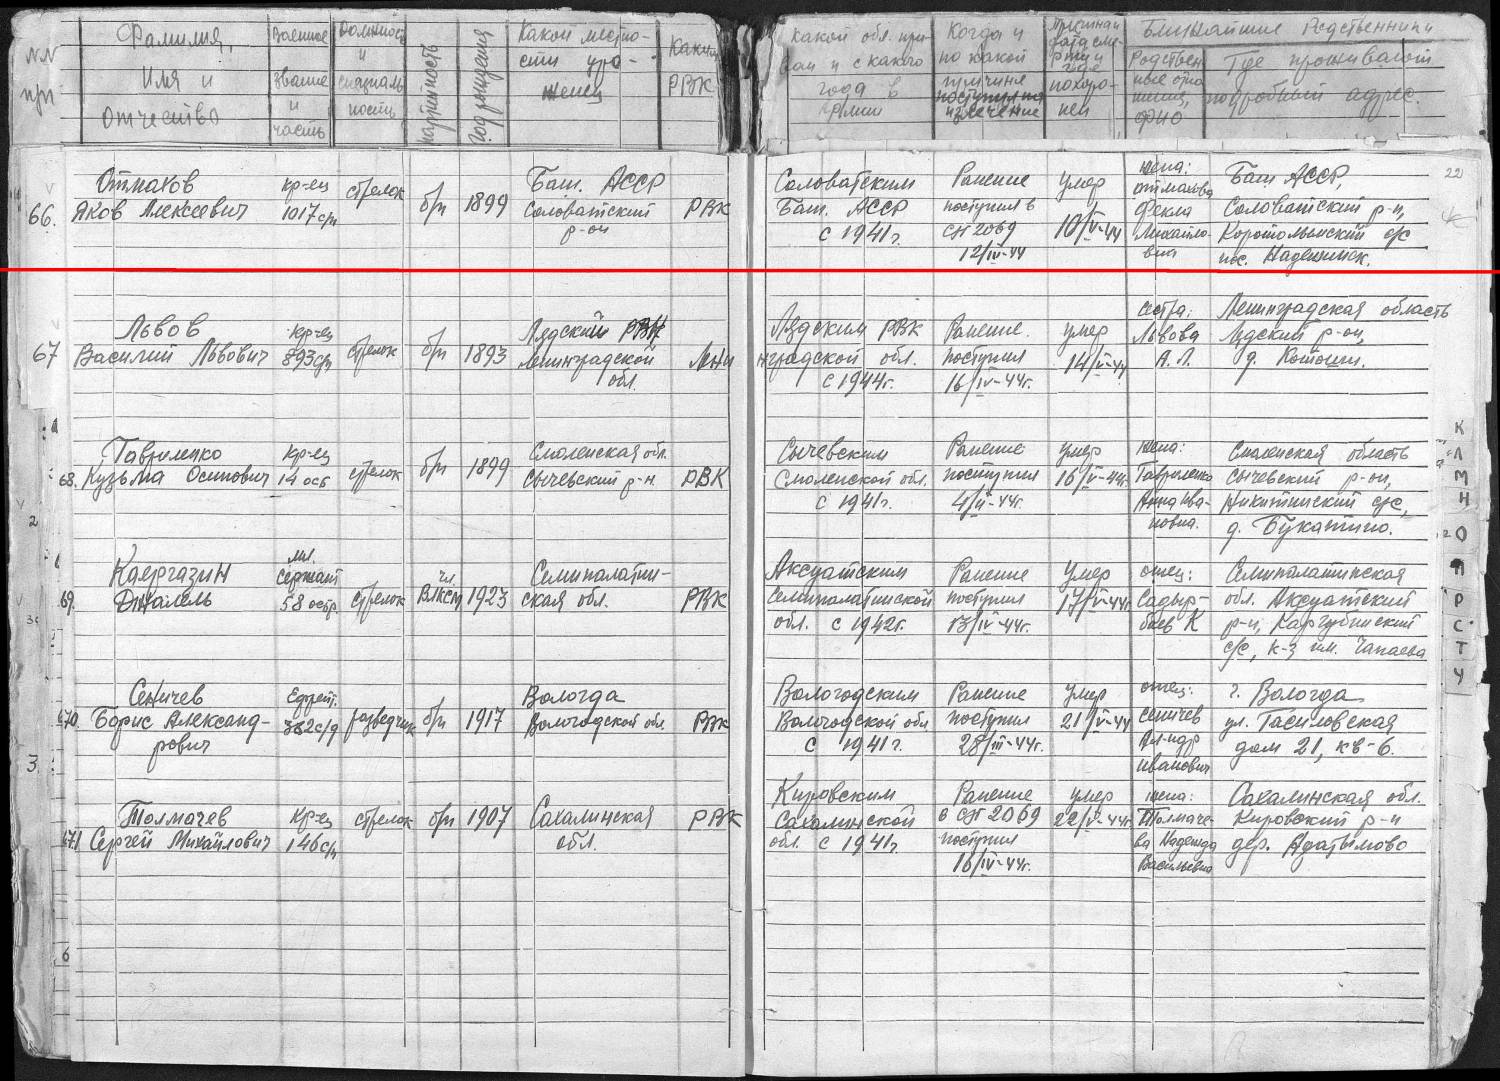 NN п/п
Фамилия, Имя и Отчество
Военное звание и часть
Должность и специальность
Партийность
Год рождения
Какой местности уроженец
Каким РВК
Какой обл. призван и с какого года в Армии
Когда и по какой причине поступил на излечение
Ближайшие Родственники
Где проживают подробный адрес.
22
66. Отмахов Яков Алексеевич
кр-ец 1017 с/п
стрелок
б/п
1899
Баш. АССР Соловатский р-он
РВК
Соловатским Баш. АССР с 1941 г.
Ранение поступил в СП 2069 12/IV-44
умер 10/V-44
жена: Отмахова Фекла Михайловна
Баш АССР, Соловатский р-н,
с/с
пос. Надежинск.
67 Львов Василий Львович
кр-ец 893 с/п
стрелок
б/п
1893
Лядский РВК Ленинградской обл.
Лядским РВК
нградской обл. с 1944 г.
Ранение. поступил 16/IV-44г.
умер 14/V-44
сестра: Львова А. Л.
Ленинградская область Лядский р-он,
68. Гавриленко Кузьма Осипович
Кр-ец 14 осб
стрелок
б/п
1899
Смоленская обл. Сычевский р-н
РВК
Сычевским Смоленской обл. с 1941 г.
Ранение поступил
умер 16/V-44г.
жена: Гавриленко Анна Ивановна.
Смоленская область Сычевский р-он, Никитинский с/с, д. Букатино.
69.
Джалель
мл. сержант
стрелок
чл. ВЛКСМ
1923
Семипалатинская обл.
РВК
Аксуатским Семипалатинской обл. с 1942г.
Ранение поступил 13/IV-44г.
Умер 17/V-44г.
отец: Садырбаев К
Семипалатинская обл. Аксуатский р-н,
с/с, к-з им. Чапаева
670. Сеничев Борис Александрович
Ефрейт.
разведчик
б/п
1917
Вологда Вологодской обл.
РВК
Вологодским Вологодской обл. с 1941 г.
Ранение поступил 28/III-44г.
умер 21/V-44
отец: Сеничев Ал-ндр Иванович
г. Вологда
дом 21, кв-6.
671 Толмачев Сергей Михайлович
Кр-ец 146 с/п
стрелок
б/п
1907
Сахалинская обл.
РВК
Кировским Сахалинской обл. с 1941 г
Ранение в СП 2069 поступил 16/IV-44г.
умер 22/V-44г.
жена: Толмачева Надежда Васильевна
Сахалинская обл. Кировский р-н
К
Л
М
Н
О
П
Р
С
Т
У